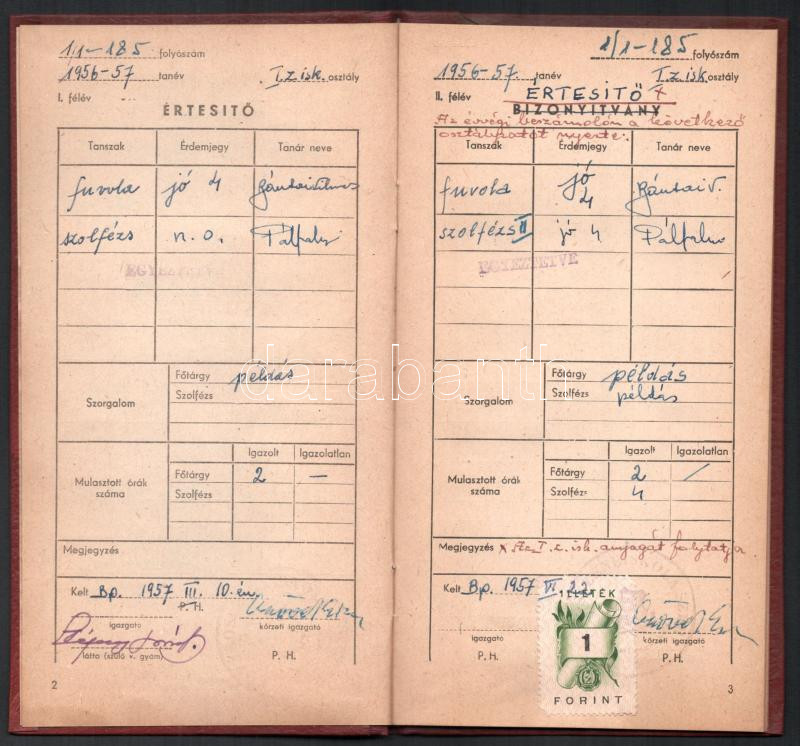 1/1-185 folyószám
1956-57 tanév I.z.isk. osztály
I. félév
ÉRTESITŐ
Tanszak Érdemjegy Tanár neve
fuvola jó 4
szolfézs n.o.
EGYEZTETVE
Szorgalom
Főtárgy példás
Szolfézs
Igazolt Igazolatlan
Mulasztott órák száma
Főtárgy 2 —
Szolfézs
Megjegyzés
Kelt Bp. 1957 III. 10-én
P. H.
igazgató körzeti igazgató
látta (szülő v. gyám) P. H.
2
1/1-185 folyószám
1956-57. tanév I.z.isk. osztály
II. félév ÉRTESITŐ x
BIZONYITVÁNY
Az évvégi beszámolón a következő
osztályzatot nyerte:
Tanszak Érdemjegy Tanár neve
fuvola jó 4 Bántai V.
szolfézs II jó 4
EGYEZTETVE
Szorgalom
Főtárgy példás
Szolfézs példás
Igazolt Igazolatlan
Mulasztott órák száma
Főtárgy 2 /
Szolfézs 4
Megjegyzés x Az I. z. isk. anyagát folytatja
Kelt Bp. 1957 VI. 22
ILLETÉK
1
FORINT
igazgató körzeti igazgató
P. H. P. H.
3
darabanth